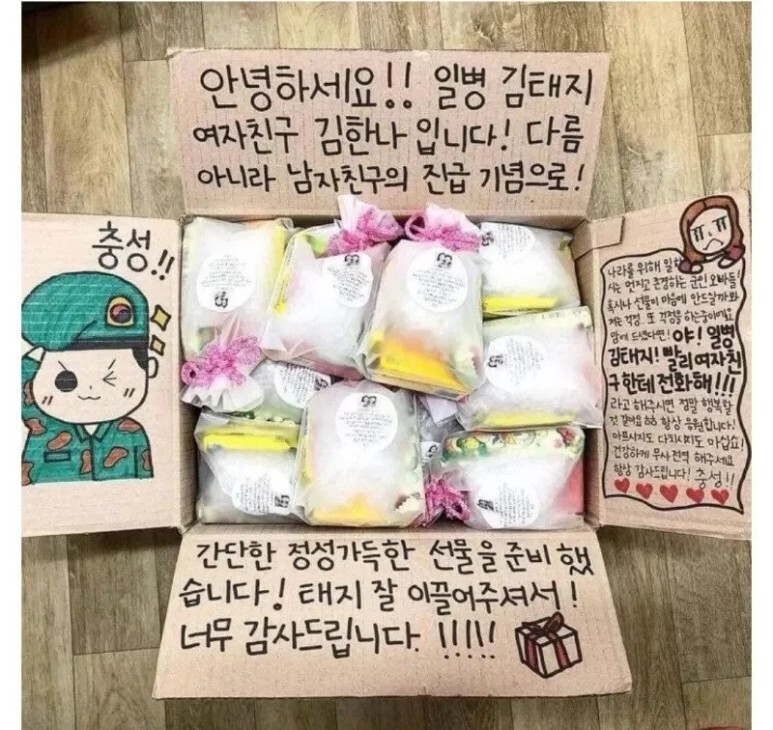 안녕하세요!! 일병 김태지
여자친구 김한나 입니다! 다름
아니라 남자친구의 진급 기념으로!
충성!!
나라를 위해 일하
시는 멋지고 존경하는 군인 오빠들!
혹시나 선물이 마음에 안드실까봐
저는 걱정. 또 걱정을 하는중이에요
맘에 드셨다면! 야! 일병
김태지! 빨리 여자친
구한테 전화해!!!
라고 해주시면 정말 행복할
것 같아요 항상 응원합니다!
아프시지도 다치시지도 마십쇼!
건강하게 무사 전역 해주세요
항상 감사드립니다! 충성!!
간단한 정성가득한 선물을 준비 했
습니다! 태지 잘 이끌어주셔서!
너무 감사드립니다. !!!!!